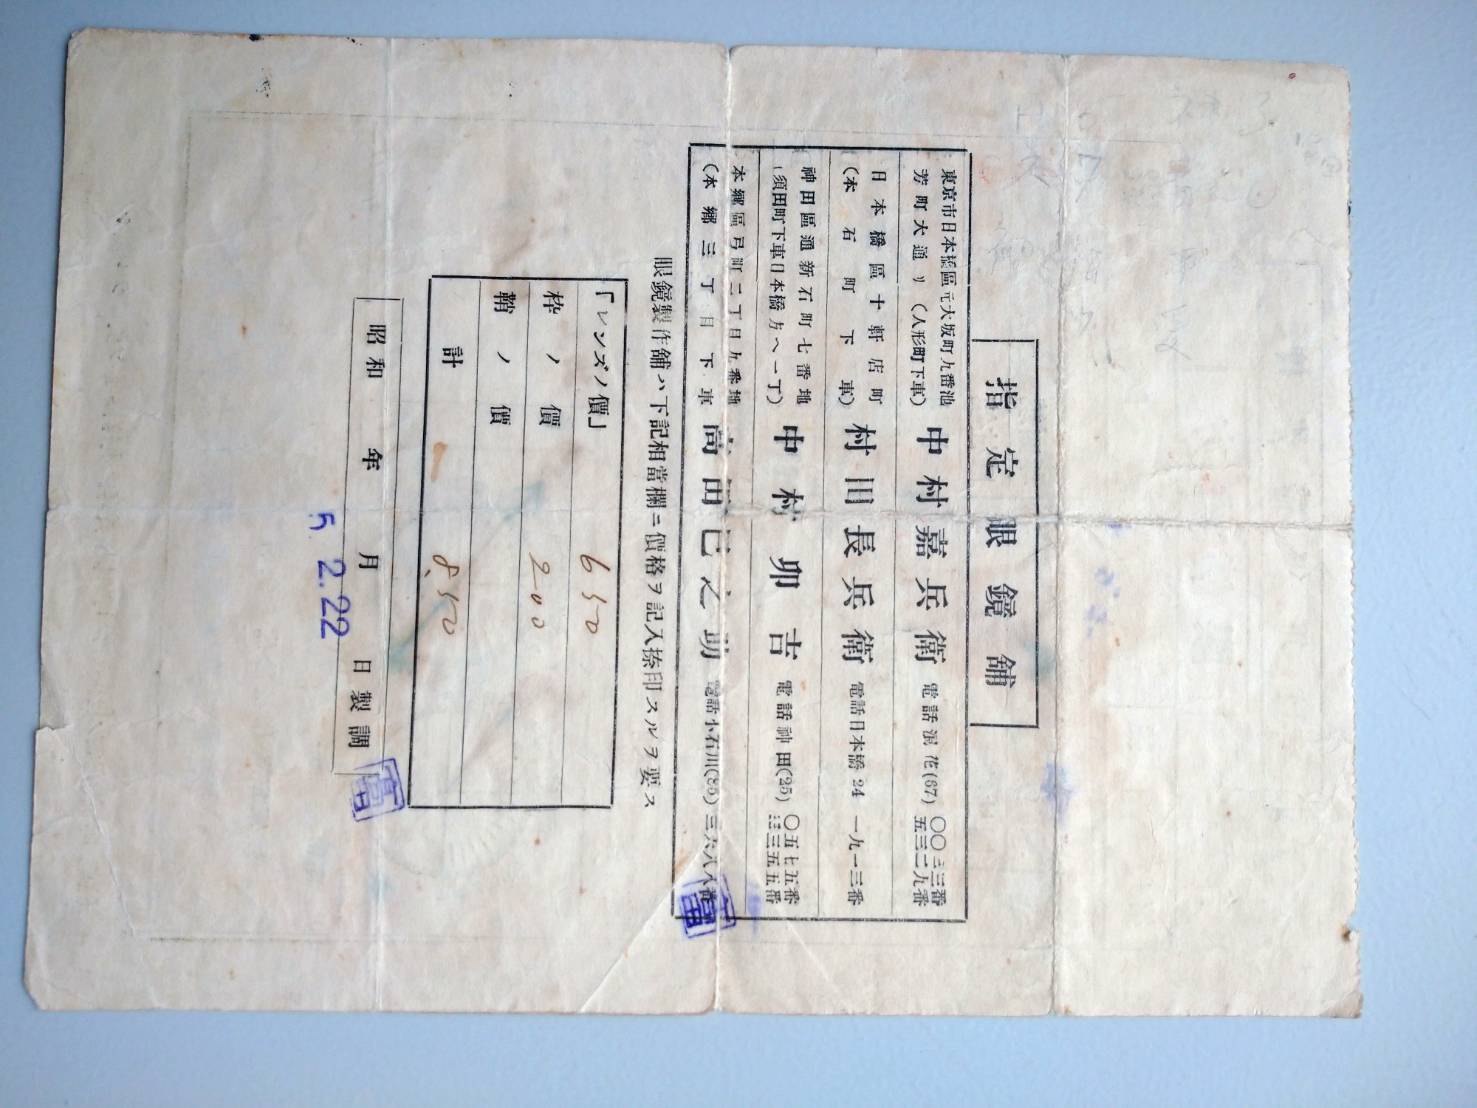 指定眼鏡舗
東京市日本橋區元大坂町九番地
芳町大通リ(人形町下車)
中村嘉兵衛
電話浪花(67)〇〇三三番
五三二九番
日本橋區十軒店町
(本石町下車)
村田長兵衛
電話日本橋24一九一三番
神田區通新石町七番地
(須田町下車日本橋方へ一丁)
中村卯吉
電話神田(25)〇五七五番
三三五五番
本郷區弓町二丁目九番地
(本郷三丁目下車
高田巳之助
電話小石川(85)三六八八番
眼鏡製作舗ハ下記相當欄ニ價格ヲ記入捺印スルヲ要ス
「レンズノ價」 650
枠ノ價 200
鞘ノ價
計 8.50
昭和 年 月 日製調
5. 2.22